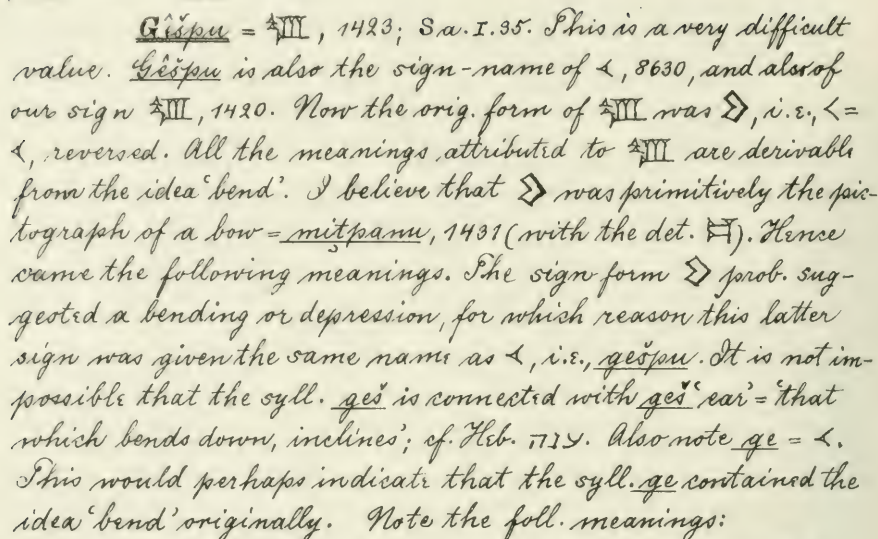 Gîšpu = 𒁄, 1423; Sa. I. 35. This is a very difficult
value. Gêšpu is also the sign-name of 𒀹, 8630, and also of
our sign 𒁄, 1420. Now the orig. form of 𒁄 was , i.e., < =
𒀹, reversed. All the meanings attributed to 𒁄 are derivable
from the idea ‘bend’. I believe that was primitively the pic-
tograph of a bow = mitpanu, 1431 (with the det. 𒄑). Hence
came the following meanings. The sign form prob. sug-
gested a bending or depression, for which reason this latter
sign was given the same name as 𒀹, i.e., gešpu. It is not im-
possible that the syll. geš is connected with geš ‘ear’ = ‘that
which bends down, inclines’; cf. Heb. ענה. Also note ge = 𒀹.
This would perhaps indicate that the syll. ge contained the
idea ‘bend’ originally. Note the foll. meanings: